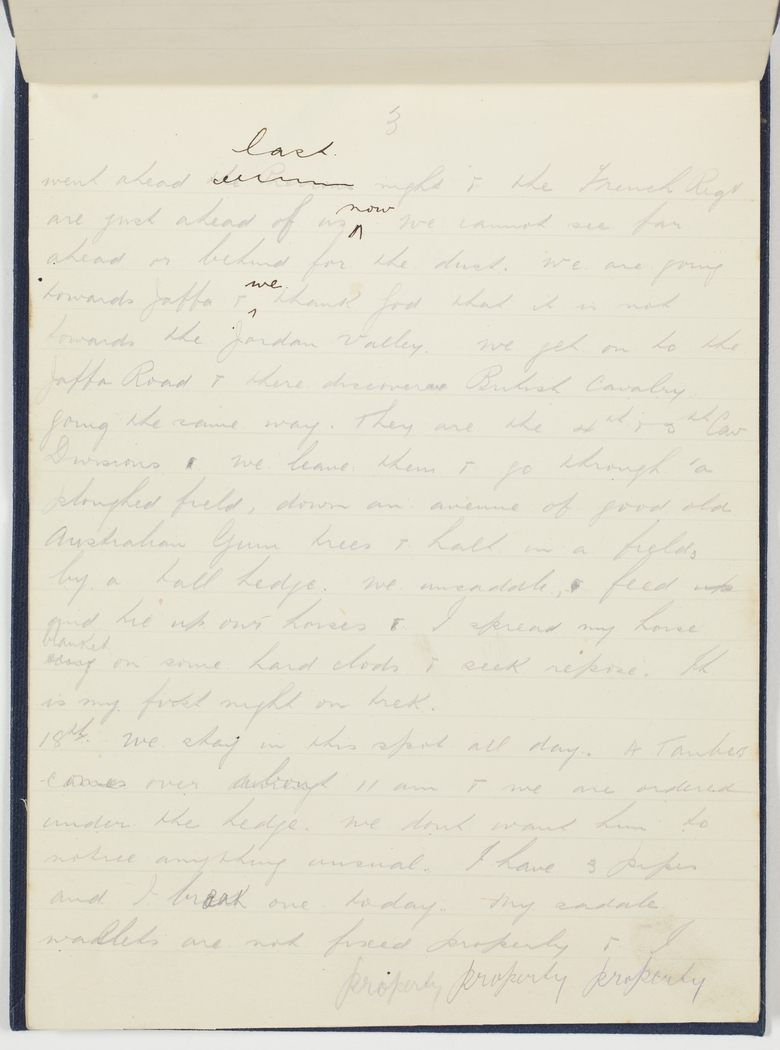 3
last
went ahead night & the French Regt
now
are just ahead of us We cannot see far
ahead or behind for the dust. We are going
we
towards Jaffa & thank God that it is not
towards the Jordan Valley. We get on to the
Jaffa Road & there discover British Cavalry
going the same way. They are the 4th & 5th Cav
Divisions & we leave them & go through a
ploughed field, down an avenue of good old
Australian Gum trees & halt in a field
by a tall hedge. We unsaddle, & feed
and tie up our horses & I spread my horse
blanket
on some hard clods & seek repose. It
is my first night on trek.
18th. We stay in this spot all day. A Taube
comes over about 11 am & we are ordered
under the hedge. We dont want him to
notice anything unusual. I have 3 pipes
and I break one today. My saddle
wallets are not fixed properly & I
property property property